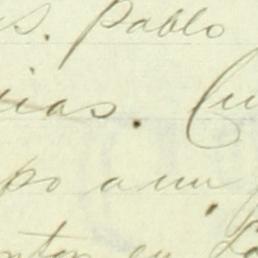 s. Pablo
ias. Cu
po a un
nton en Lo